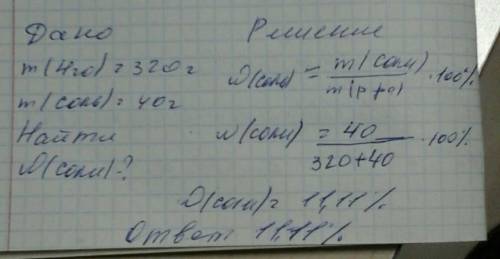 Дано
m(H2O) = 320г
m(соль) = 40г
Найти
ω(соли)-?
Решение
ω(соли) = m(соли) / m(р-ра) · 100%
ω(соли) = 40 / 320+40 · 100%
ω(соли) = 11,11%
Ответ 11,11%